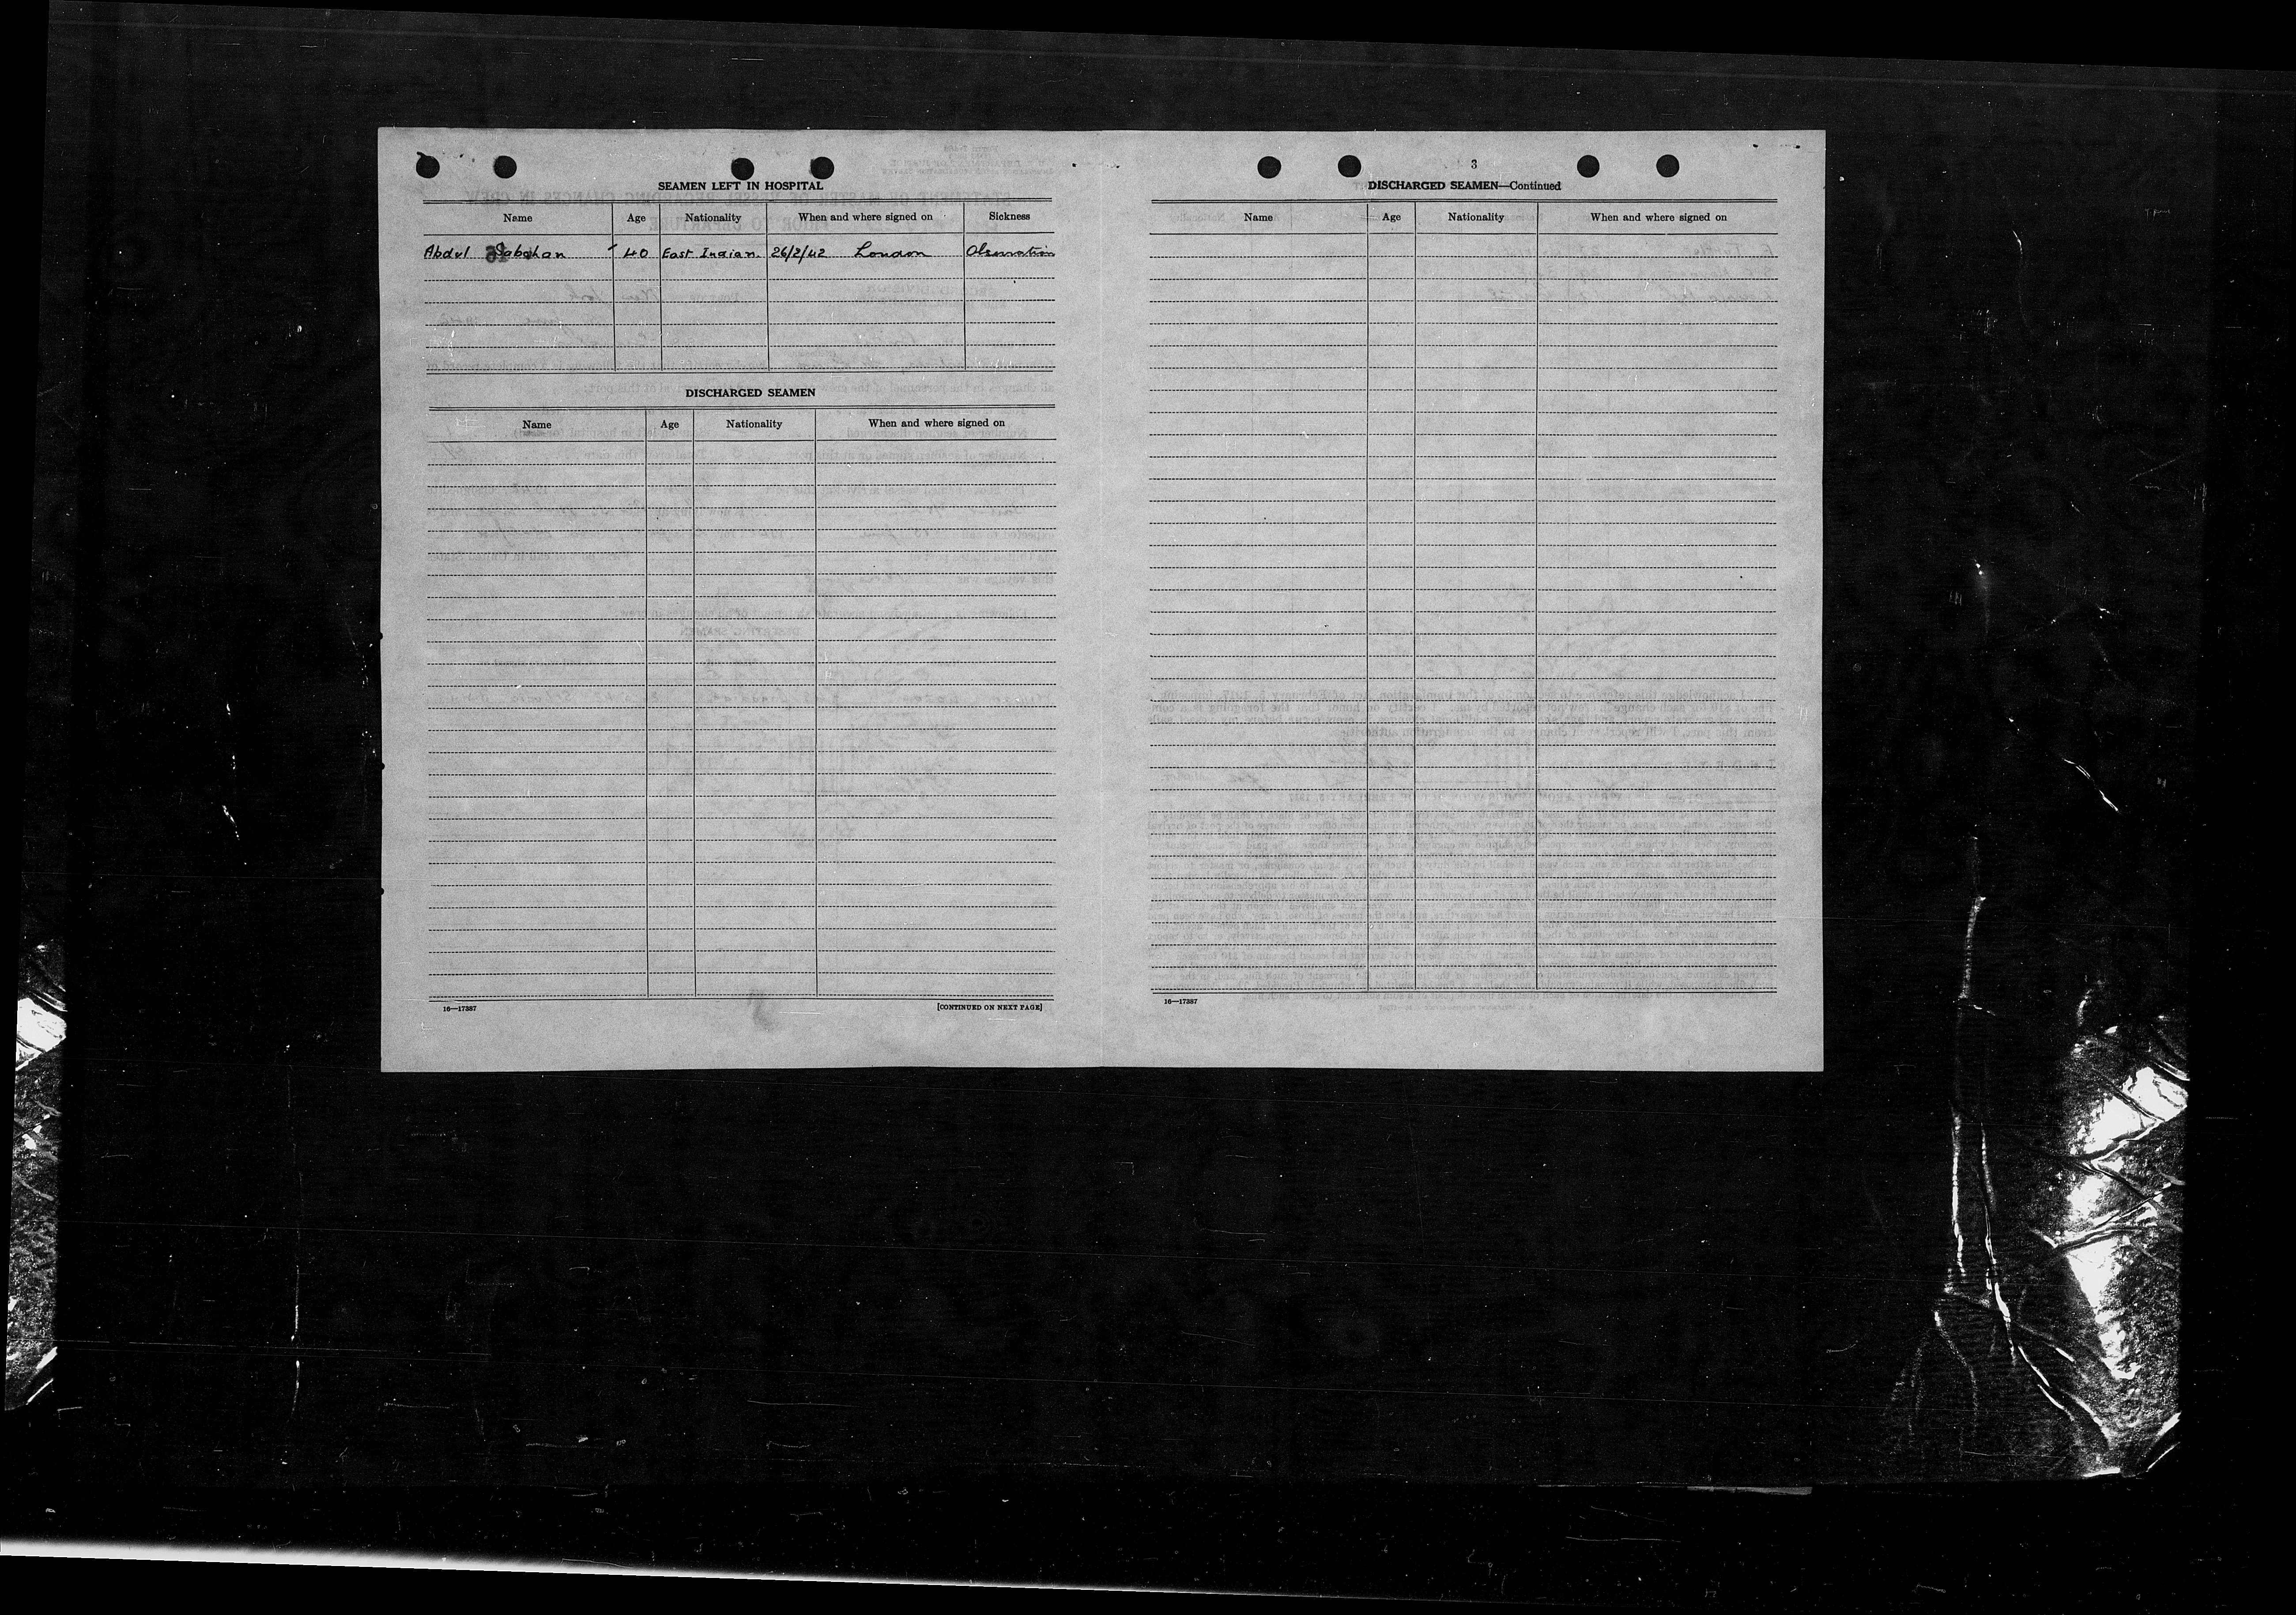 SEAMEN LEFT IN HOSPITAL
Name Age Nationality When and where signed on Sickness
Abdul Sabahan 40 East Indian 26/2/42 London Observation
DISCHARGED SEAMEN
Name Age Nationality When and where signed on
16—17387 [CONTINUED ON NEXT PAGE]
3
DISCHARGED SEAMEN—Continued
Name Age Nationality When and where signed on
16—17387